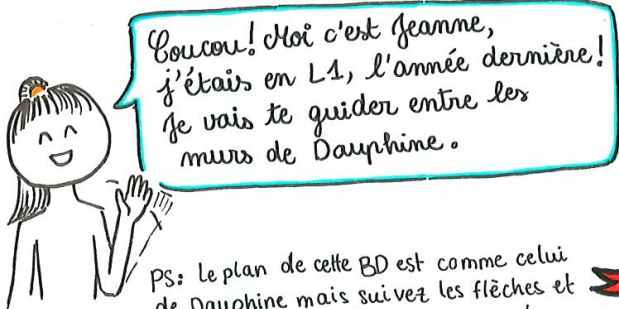 Coucou! Moi c'est Jeanne,
j'étais en L1, l'année dernière!
Je vais te guider entre les
murs de Dauphine.
PS: Le plan de cette BD est comme celui
de Dauphine mais suivez les flèches et